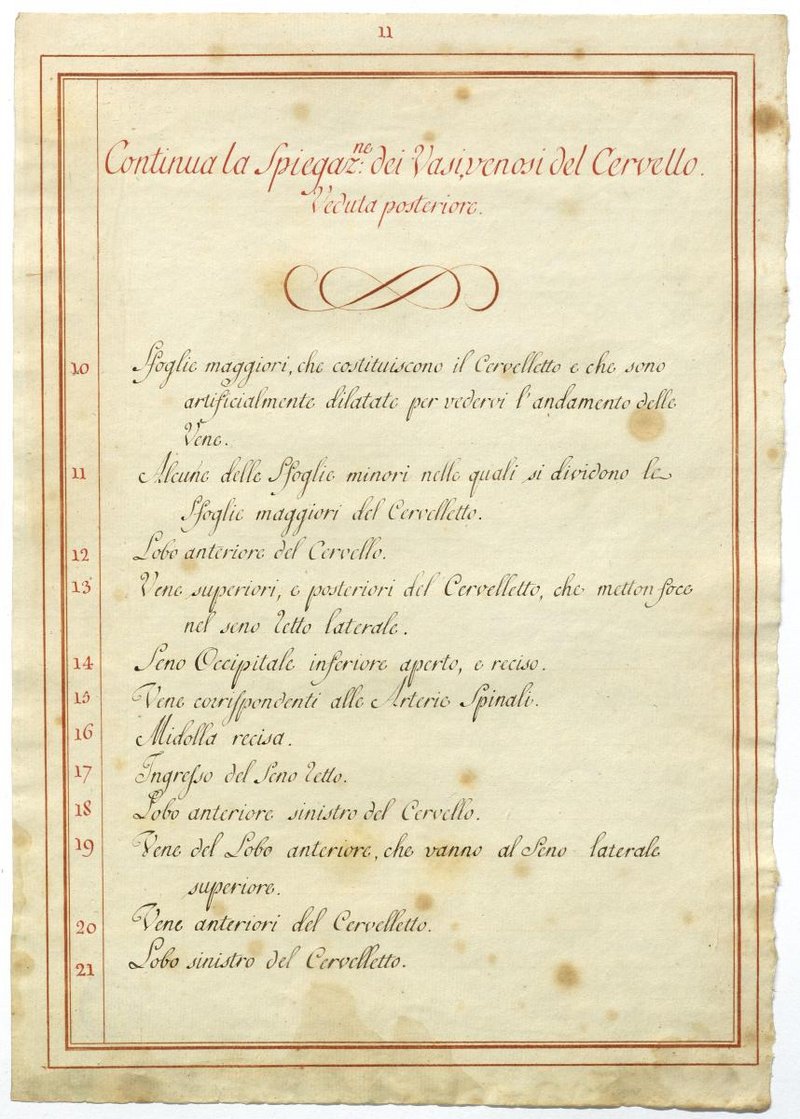 11
Continua la Spiegaz.ne dei Vasi venosi del Cervello.
Veduta posteriore.
10 Sfoglie maggiori, che costituiscono il Cervelletto e che sono
artificialmente dilatate per vedervi l'andamento delle
Vene.
11 Alcune delle Sfoglie minori nelle quali si dividono le
Sfoglie maggiori del Cervelletto.
12 Lobo anteriore del Cervello.
13 Vene superiori, e posteriori del Cervelletto, che metton foce
nel seno retto laterale.
14 Seno Occipitale inferiore aperto, e reciso.
15 Vene corrispondenti alle Arterie Spinali.
16 Midolla recisa.
17 Ingresso del Seno retto.
18 Lobo anteriore sinistro del Cervello.
19 Vene del Lobo anteriore, che vanno al Seno laterale
superiore.
20 Vene anteriori del Cervelletto.
21 Lobo sinistro del Cervelletto.